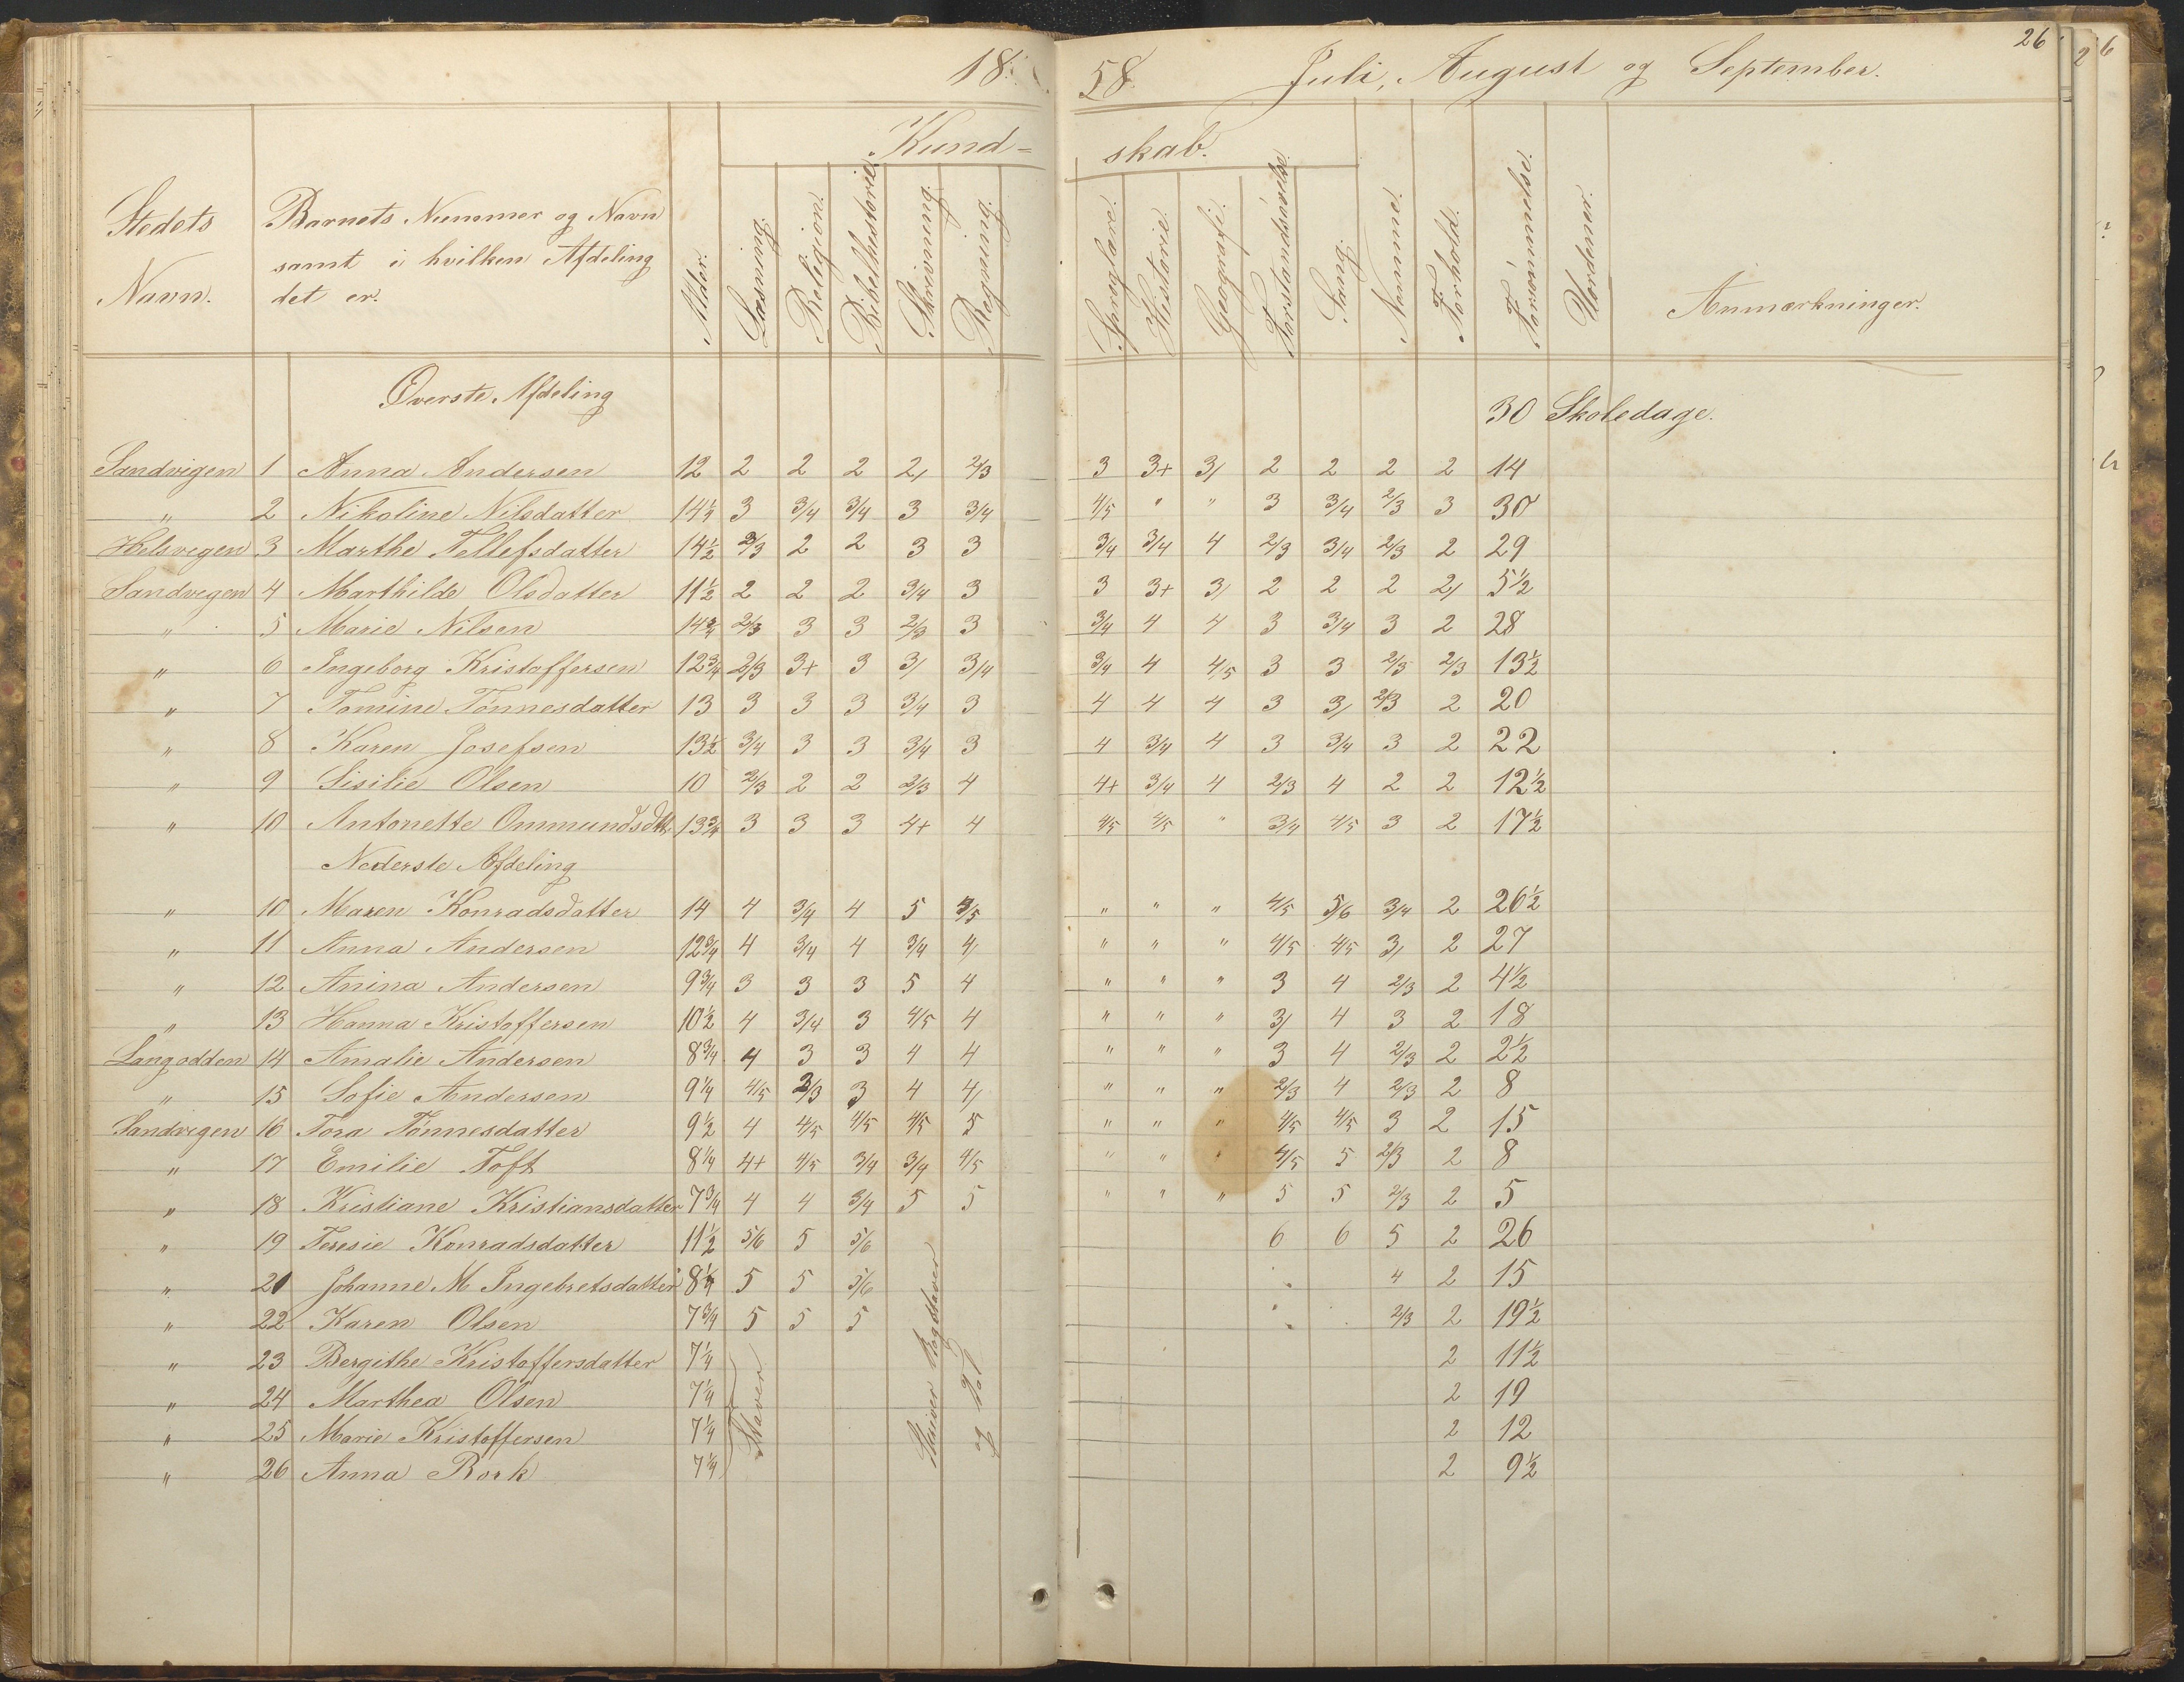 1858. Juli, August og September. 26
Kundskab.
Stedets Navn. Barnets Nummer og Navn samt i hvilken Afdeling det er. Alder. Læsning. Religion. Bibelhistorie. Skrivning. Regning. Sproglære. Historie. Geografi. Forstandsøvelse. Sang. Nemme. Forhold. Forsømmelse. Uordener. Anmærkninger.
Øverste Afdeling 30 Skoledage.
Sandvigen 1 Anna Andersen 12 2 2 2 2/ 2/3 3 3+ 3/ 2 2 2 2 14
" 2 Nikoline Nilsdatter 14½ 3 3/4 3/4 3 3/4 4/5 " " 3 3/4 2/3 3 30
Helsvegen 3 Marthe Tellefsdatter 14½ 2/3 2 2 3 3 3/4 3/4 4 2/3 3/4 2/3 2 29
Sandvegen 4 Marthilde Olsdatter 11½ 2 2 2 3/4 3 3 3+ 3/ 2 2 2 2/ 5½
" 5 Marie Nilsen 14¾ 2/3 3 3 2/3 3 3/4 4 4 3 3/4 3 2 28
" 6 Ingeborg Kristoffersen 12¾ 2/3 3+ 3 3/ 3/4 3/4 4 4/5 3 3 2/3 2/3 13½
" 7 Tomine Tønnesdatter 13 3 3 3 3/4 3 4 4 4 3 3/ 2/3 2 20
" 8 Karen Josefsen 13½ 3/4 3 3 3/4 3 4 3/4 4 3 3/4 3 2 22
" 9 Sisilie Olsen 10 2/3 2 2 2/3 4 4+ 3/4 4 2/3 4 2 2 12½
" 10 Antonette Ommundsdtt. 13¾ 3 3 3 4+ 4 4/5 4/5 " 3/4 4/5 3 2 17½
Nederste Afdeling
" 10 Maren Konradsdatter 14 4 3/4 4 5 4/5 " " " 4/5 5/6 3/4 2 26½
" 11 Anna Andersen 12¾ 4 3/4 4 3/4 4/ " " " 4/5 4/5 3/ 2 27
" 12 Anina Andersen 9¾ 3 3 3 5 4 " " " 3 4 2/3 2 4½
" 13 Hanna Kristoffersen 10½ 4 3/4 3 4/5 4 " " " 3/ 4 3 2 18
Langodden 14 Amalie Andersen 8¾ 4 3 3 4 4 " " " 3 4 2/3 2 2½
" 15 Sofie Andersen 9¼ 4/5 2/3 3 4 4/ " " " 2/3 4 2/3 2 8
Sandvigen 16 Tora Tønnesdatter 9½ 4 4/5 4/5 4/5 5 " " " 4/5 4/5 3 2 15
" 17 Emilie Toft 8¼ 4+ 4/5 3/4 3/4 4/5 " " " 4/5 5 2/3 2 8
" 18 Kristiane Kristiansdatter 7¾ 4 4 3/4 5 5 " " " 5 5 2/3 2 5
" 19 Teresie Konradsdatter 11½ 5/6 5 5/6 6 6 5 2 26
" 21 Johanne M Ingebretsdatter 8¼ 5 5 5/6 4 2 15
" 22 Karen Olsen 7¾ 5 5 5 2/3 2 19½
" 23 Bergithe Kristoffersdatter 7¼ 2 11½
" 24 Marthea Olsen 7¼ 2 19
" 25 Marie Kristoffersen 7¼ 2 12
" 26 Anna Bork 7¼ 2 9½
Staver
Skriver Bogstaver
og Tal